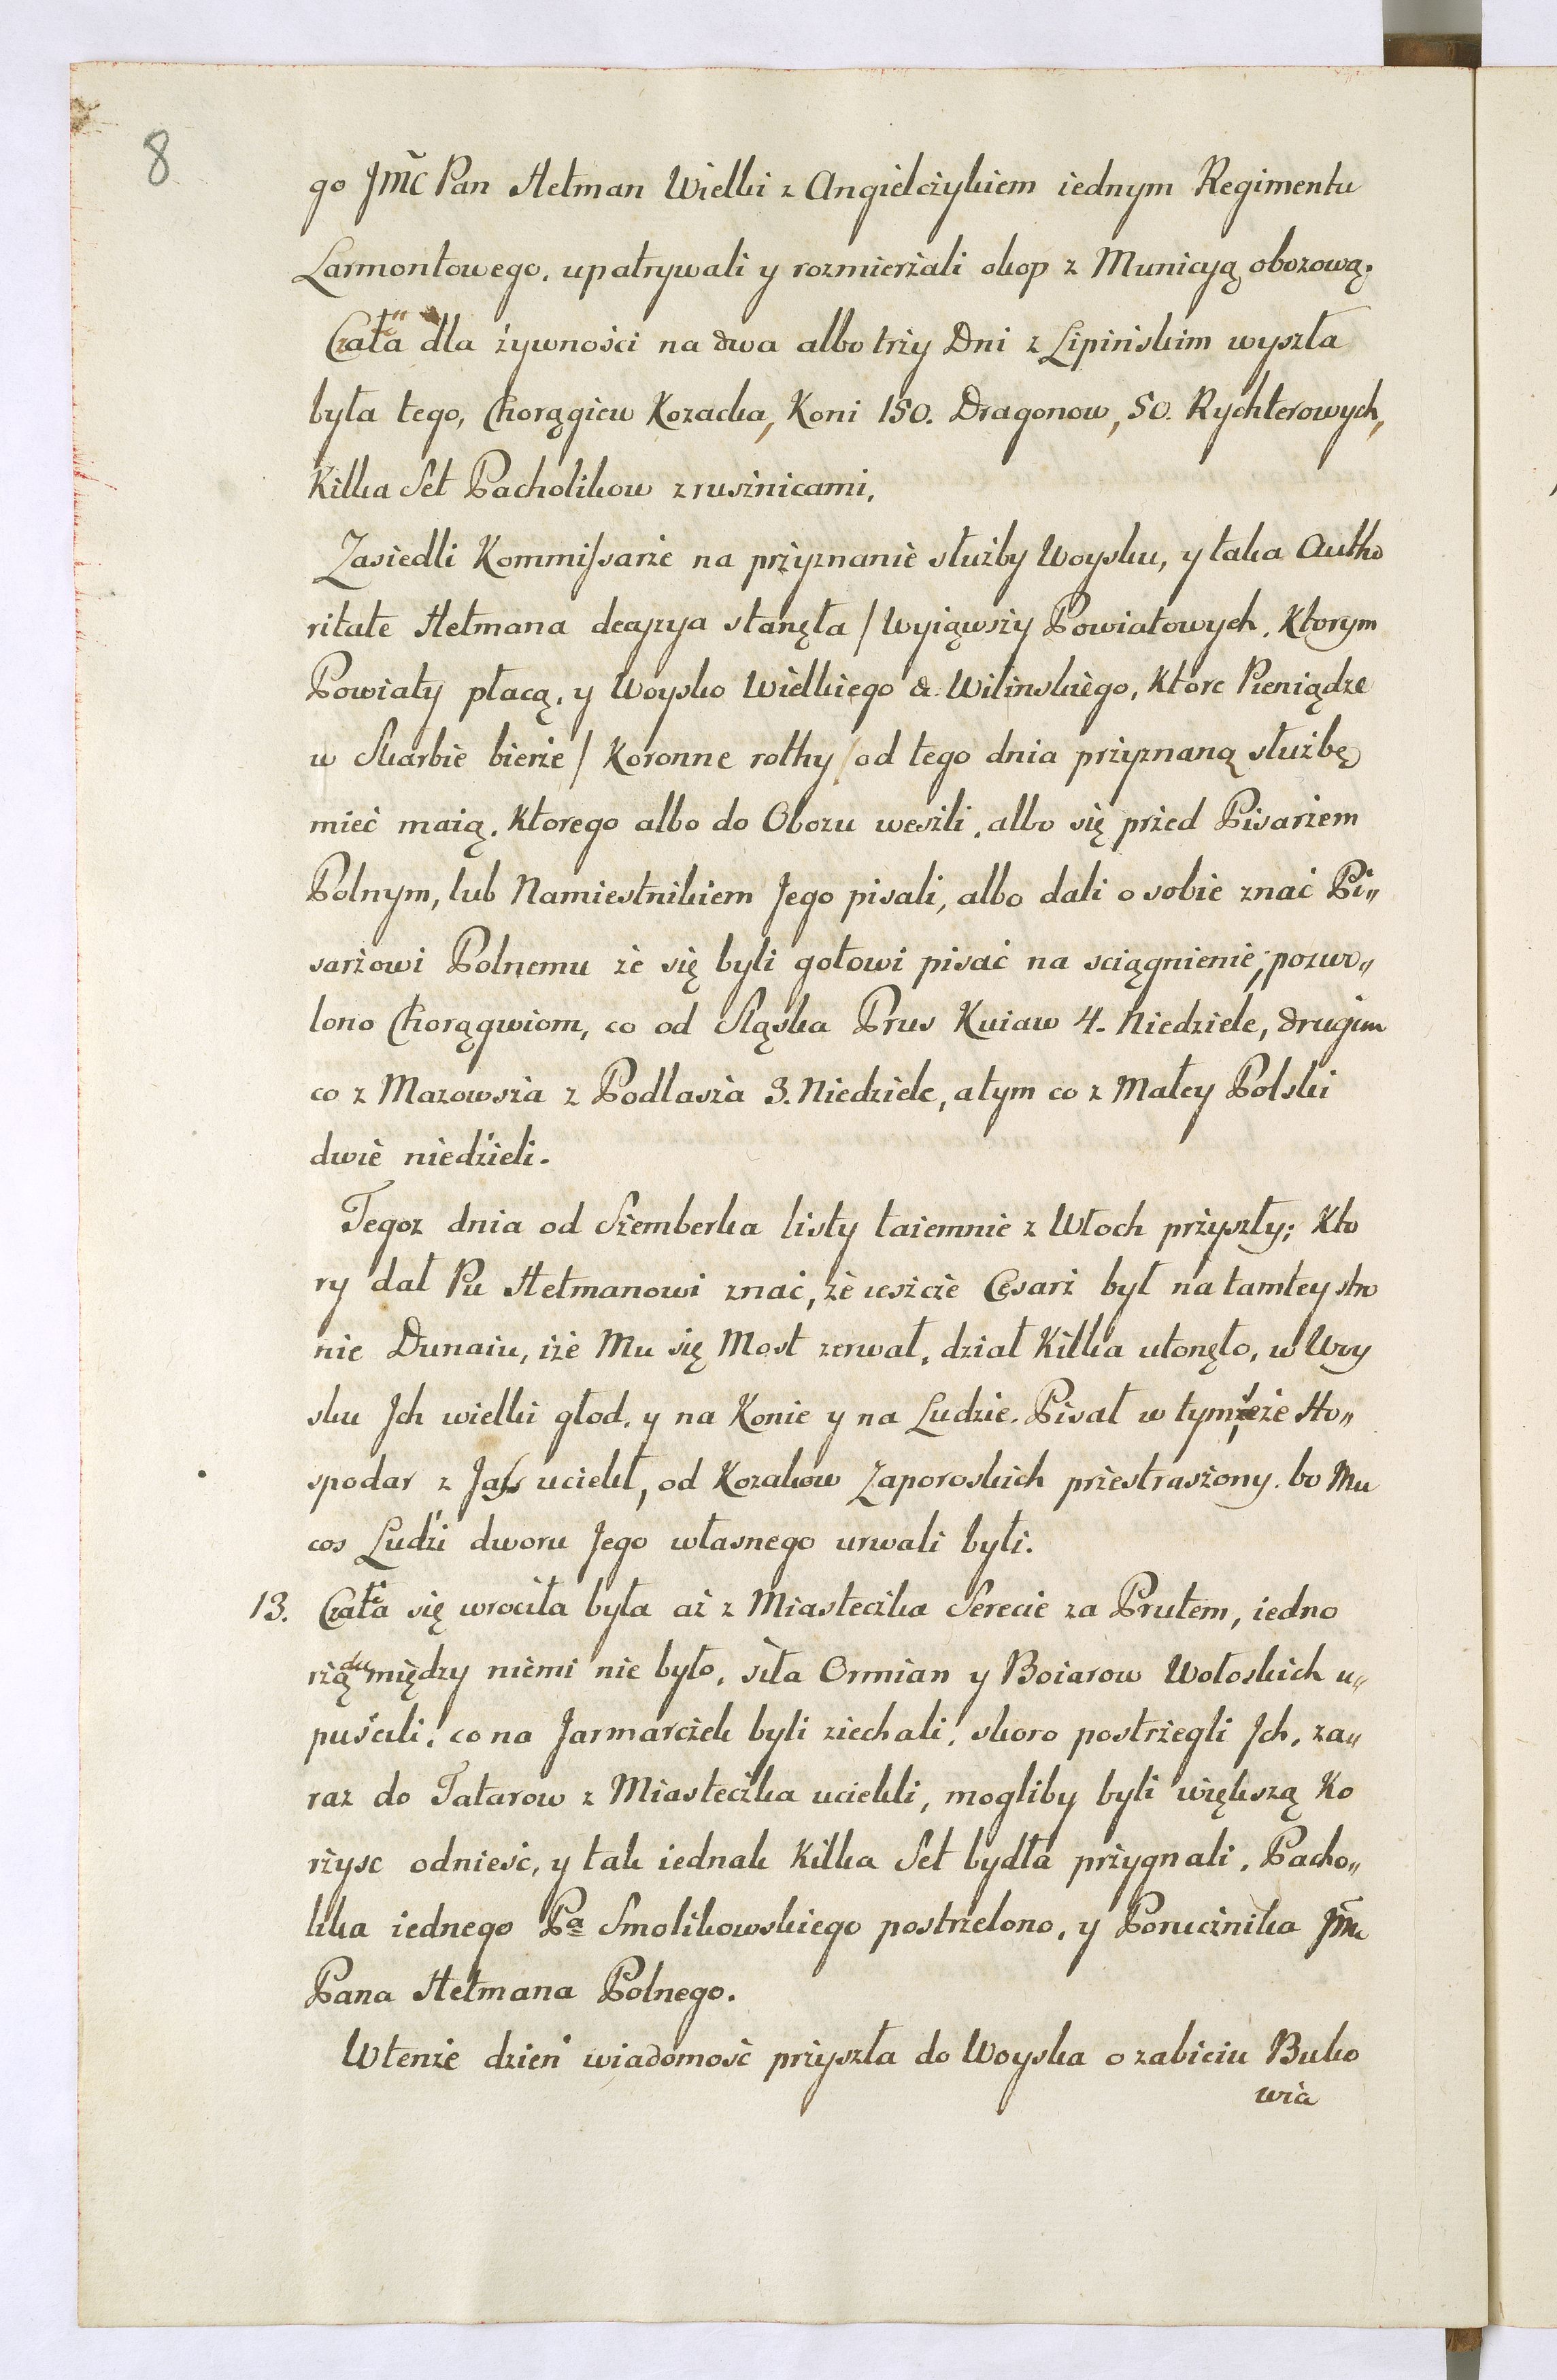 8
go Jmc Pan Hetman Wielki z Angielcżykiem iednym Regimentu
Larmontowego, upatrywali y rozmierżali okop z Municyą obozową.
Czata dla żywności na dwa albo trży Dni z Lipińskim wyszła
była tego, Chorągiew Kozacka, Koni 150. Dragonow, 50. Rychterowych,
Kilka Set Pacholikow z rusżnicami.
Zasiedli Kommissarże na prżyznanie służby Woysku, y taka Autho
ritate Hetmana decyzya stanęła / Wyiąwszy Powiatowych, Ktorym
Powiaty płacą, y Woysko Wielkiego X. Wilinskiego, Ktore Pieniądze
w Skarbie bierże / Koronne rothy / od tego dnia prżyznaną służbę
mieć maią, Ktorego albo do Obozu weszli, albo się prżed Pisarżem
Polnym, lub Namiestnikiem Jego pisali, albo dali o sobie znać Pi„
sarżowi Polnemu że się byli gotowi pisać na sciągnienie, pozwo„
lono Chorągwiom, co od Sląska Prus Kuiaw 4. Niedziele, drugim
co z Mazowsża z Podlasża 3. Niedziele, a tym co z Małey Polski
dwie niedźieli.
Tegoz dnia od Sżemberka listy taiemnie z Włoch prżyszły; Kto
ry dał Pu Hetmanowi znać, że iesżcże Cesarż był na tamtey stro
nie Dunaiu, iże Mu się Most zerwał, dział Kilka utonęło, w Woy
sku Jch wielki głod, y na Konie y na Ludzie. Pisał w tym, że Ho„
spodar z Jass uciekł, od Kozakow Zaporoskich prżestrasżony. bo Mu
cos Ludźi dworu Jego własnego urwali byli.
13. Czata się wrociła była aż z Miastecżka Serecie za Prutem, iedno
rżądu między niemi nie było, siła Ormian y Boiarow Wołoskich u„
puścili, co na Jarmarcżek byli ziechali, skoro postrżegli Jch, za„
raz do Tatarow z Miastecżka uciekli, mogliby byli większą Ko
rżysc odnieść, y tak iednak Kilka Set bydła prżygnali, Pacho„
łka iednego Pa Smolikowskiego postrżelono, y Porucżnika Jmc
Pana Hetmana Polnego.
Wtenże dzień wiadomość prżyszła do Woyska o zabiciu Buko
wia